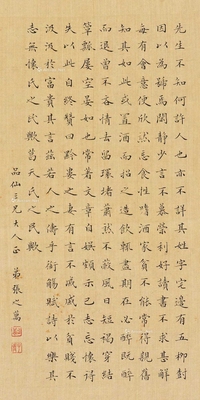 先生不知何許人也亦不詳其姓字宅邊有五柳樹
因以為號焉閑靜少言不慕榮利好讀書不求甚解
每有會意便欣然忘食性嗜酒家貧不能常得親舊
知其如此或置酒而招之造飲輒盡期在必醉既醉
而退曾不吝情去留環堵蕭然不蔽風日短褐穿結
簞瓢屢空晏如也常著文章自娛頗示己志忘懷得
失以此自終贊曰黔婁之妻有言不戚戚於貧賤不
汲汲於富貴其言茲若人之儔乎銜觴賦詩以樂其
志無懷氏之民歟葛天氏之民歟
品仙三兄大人正 弟張之萬